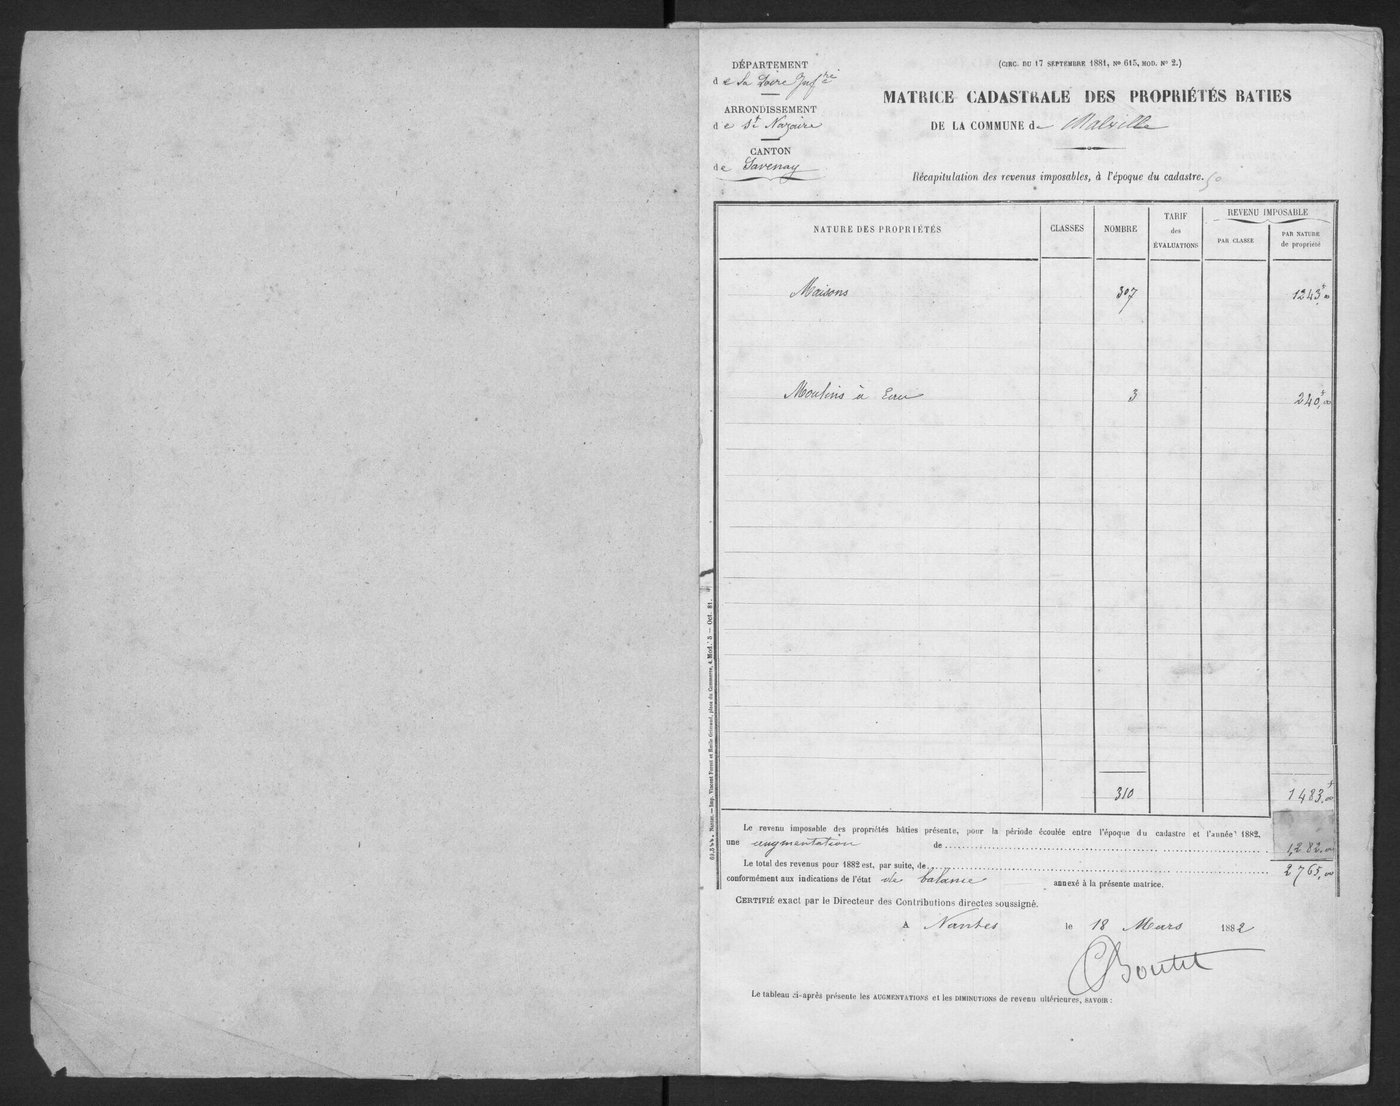 DÉPARTEMENT
de La Loire Infre
ARRONDISSEMENT
de St Nazaire
CANTON
de Savenay
(CIRC. DU 17 SEPTEMBRE 1881, No 615, MOD. No 2.)
MATRICE CADASTRALE DES PROPRIÉTÉS BATIES
DE LA COMMUNE de Malville
Récapitulation des revenus imposables, à l'époque du cadastre.
NATURE DES PROPRIÉTÉS CLASSES NOMBRE TARIF des ÉVALUATIONS REVENU IMPOSABLE
PAR CLASSE PAR NATURE de propriété
Maisons 307 1243f,00
Moulins à Eau 3 240f,00
310 1483f,00
Le revenu imposable des propriétés bâties présente, pour la période écoulée entre l'époque du cadastre et l'année 1882,
une augmentation de 1,282.00
Le total des revenus pour 1882 est, par suite, de 2765,00
conformément aux indications de l'état de balance annexé à la présente matrice.
CERTIFIÉ exact par le Directeur des Contributions directes soussigné.
A Nantes le 18 Mars 1882
Boutet
Le tableau ci-après présente les AUGMENTATIONS et les DIMINUTIONS de revenu ultérieures, SAVOIR :
Nantes. — Imp. Vincent Forest et Emile Grimaud, place du Commerce, 4. Mod. 5 — Oct. 81.